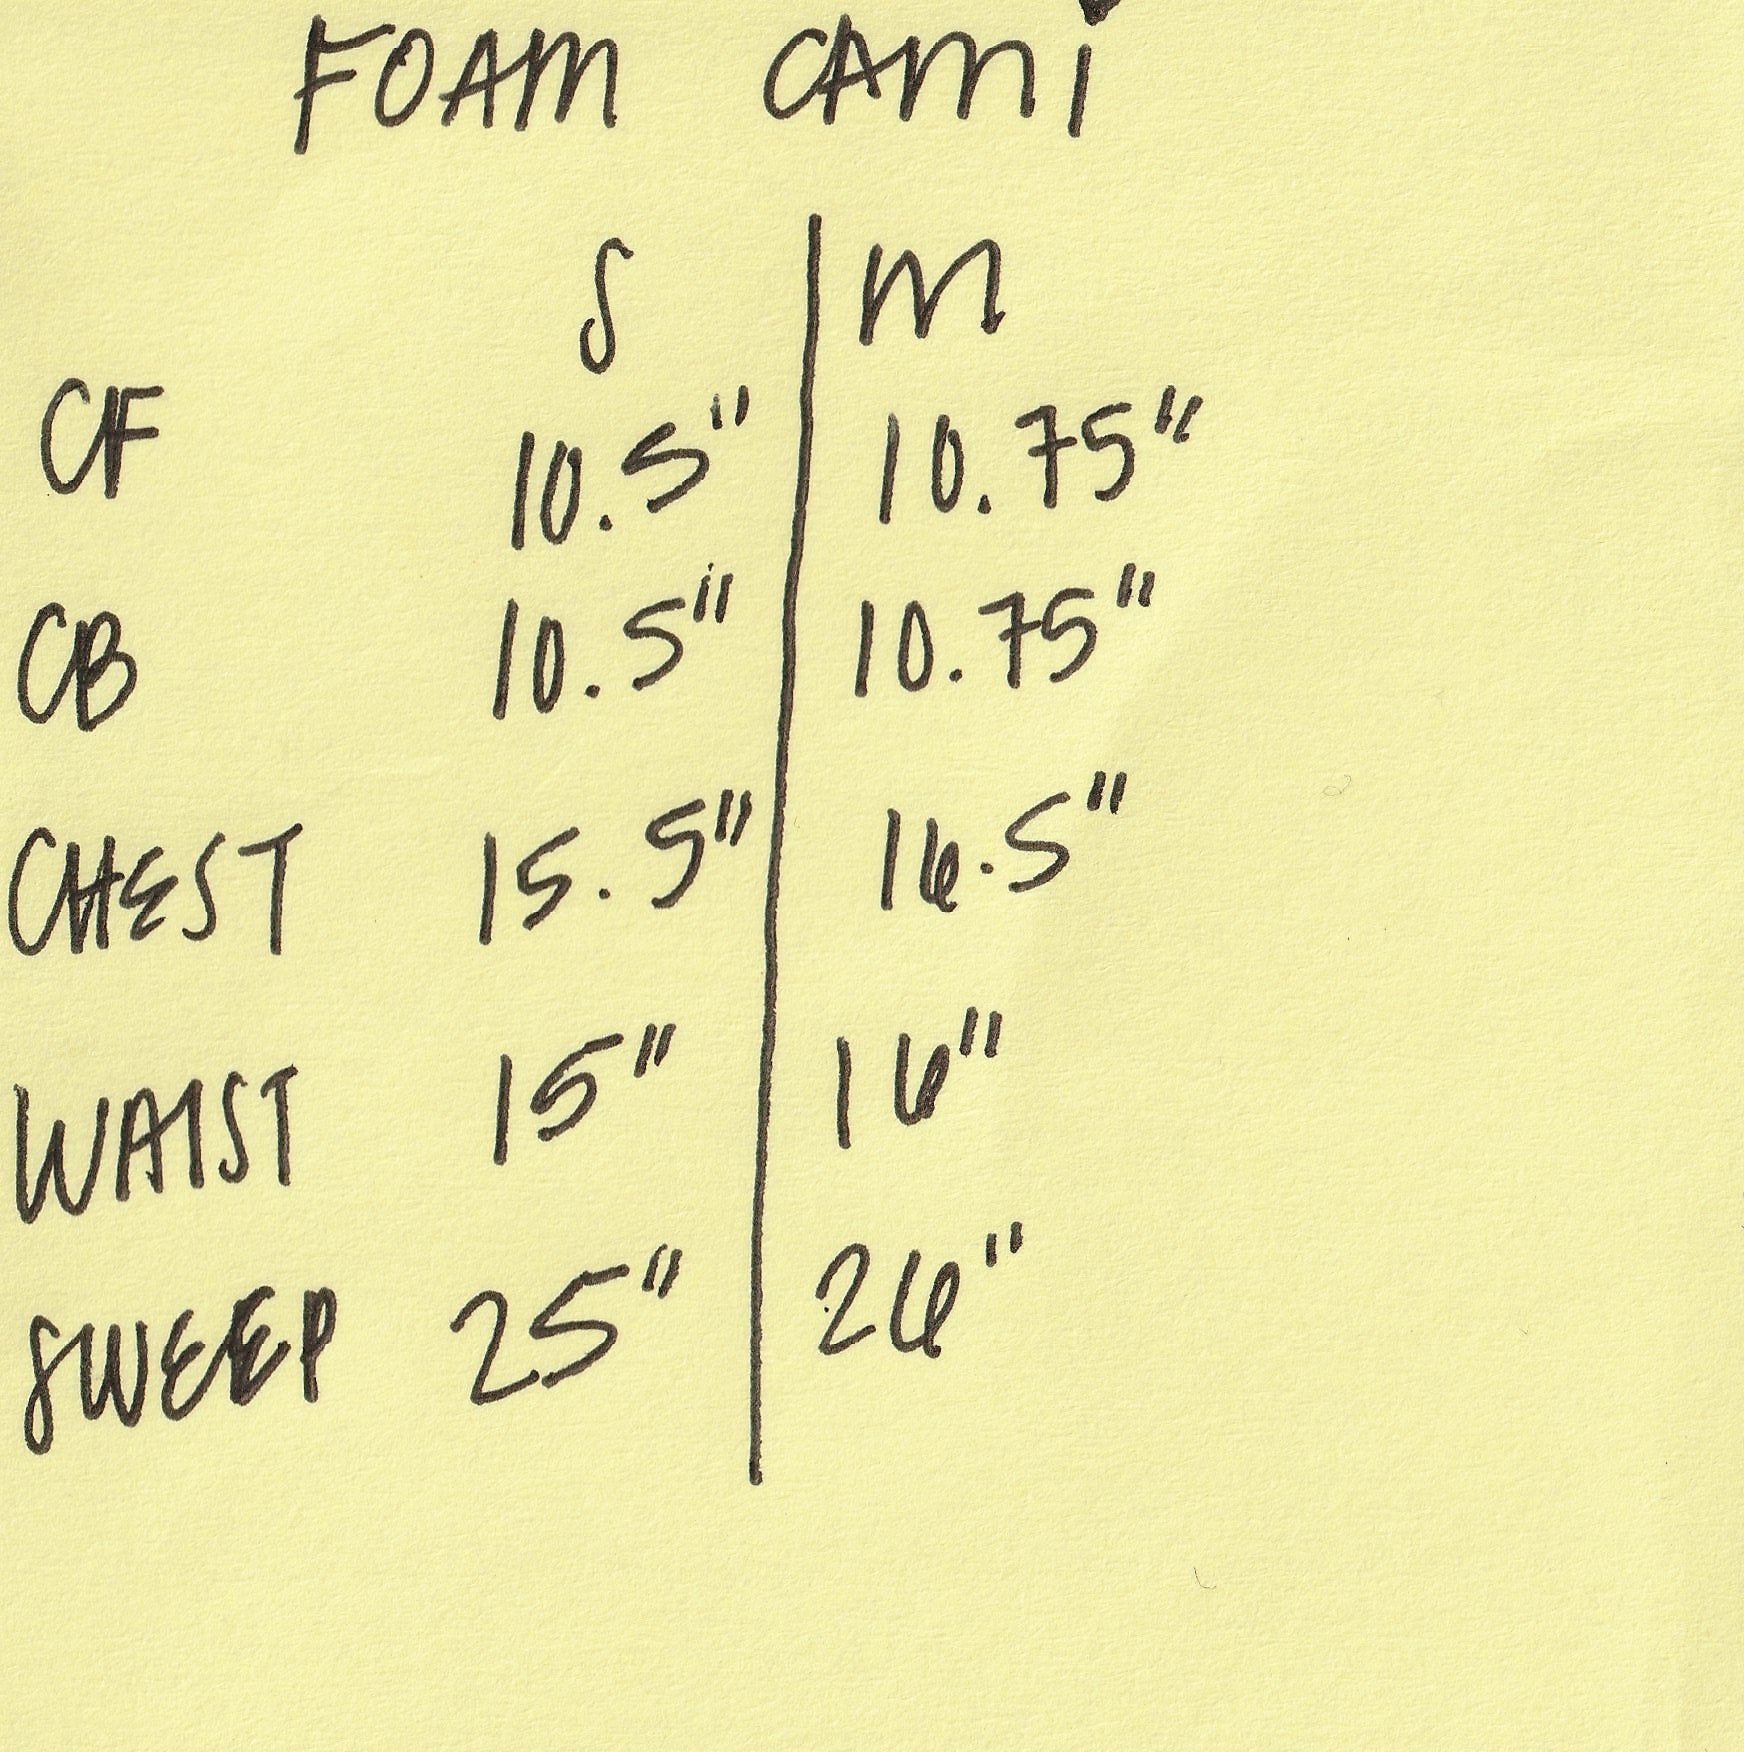 FOAM CAMI
S M
CF 10.5" 10.75"
CB 10.5" 10.75"
CHEST 15.5" 16.5"
WAIST 15" 16"
SWEEP 25" 26"